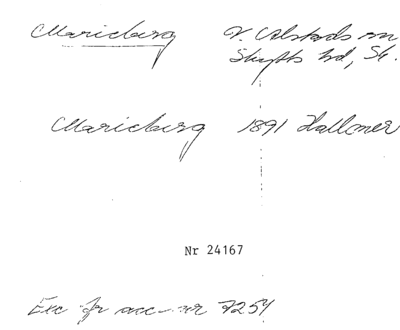 Marieberg V. Alstads sn
Skytts hd, Sk.
Marieberg 1891 Hallonen
Nr 24167
Exc fr acc-nr 7254